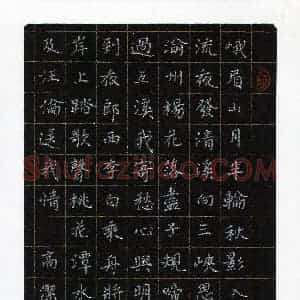 峨眉山月半輪秋影入
流夜發清溪向三峽思
渝州楊花落盡子規啼
過五溪我寄愁心與明
到夜郎西李白乘舟將
岸上踏歌聲桃花潭水
及汪倫送我情 高